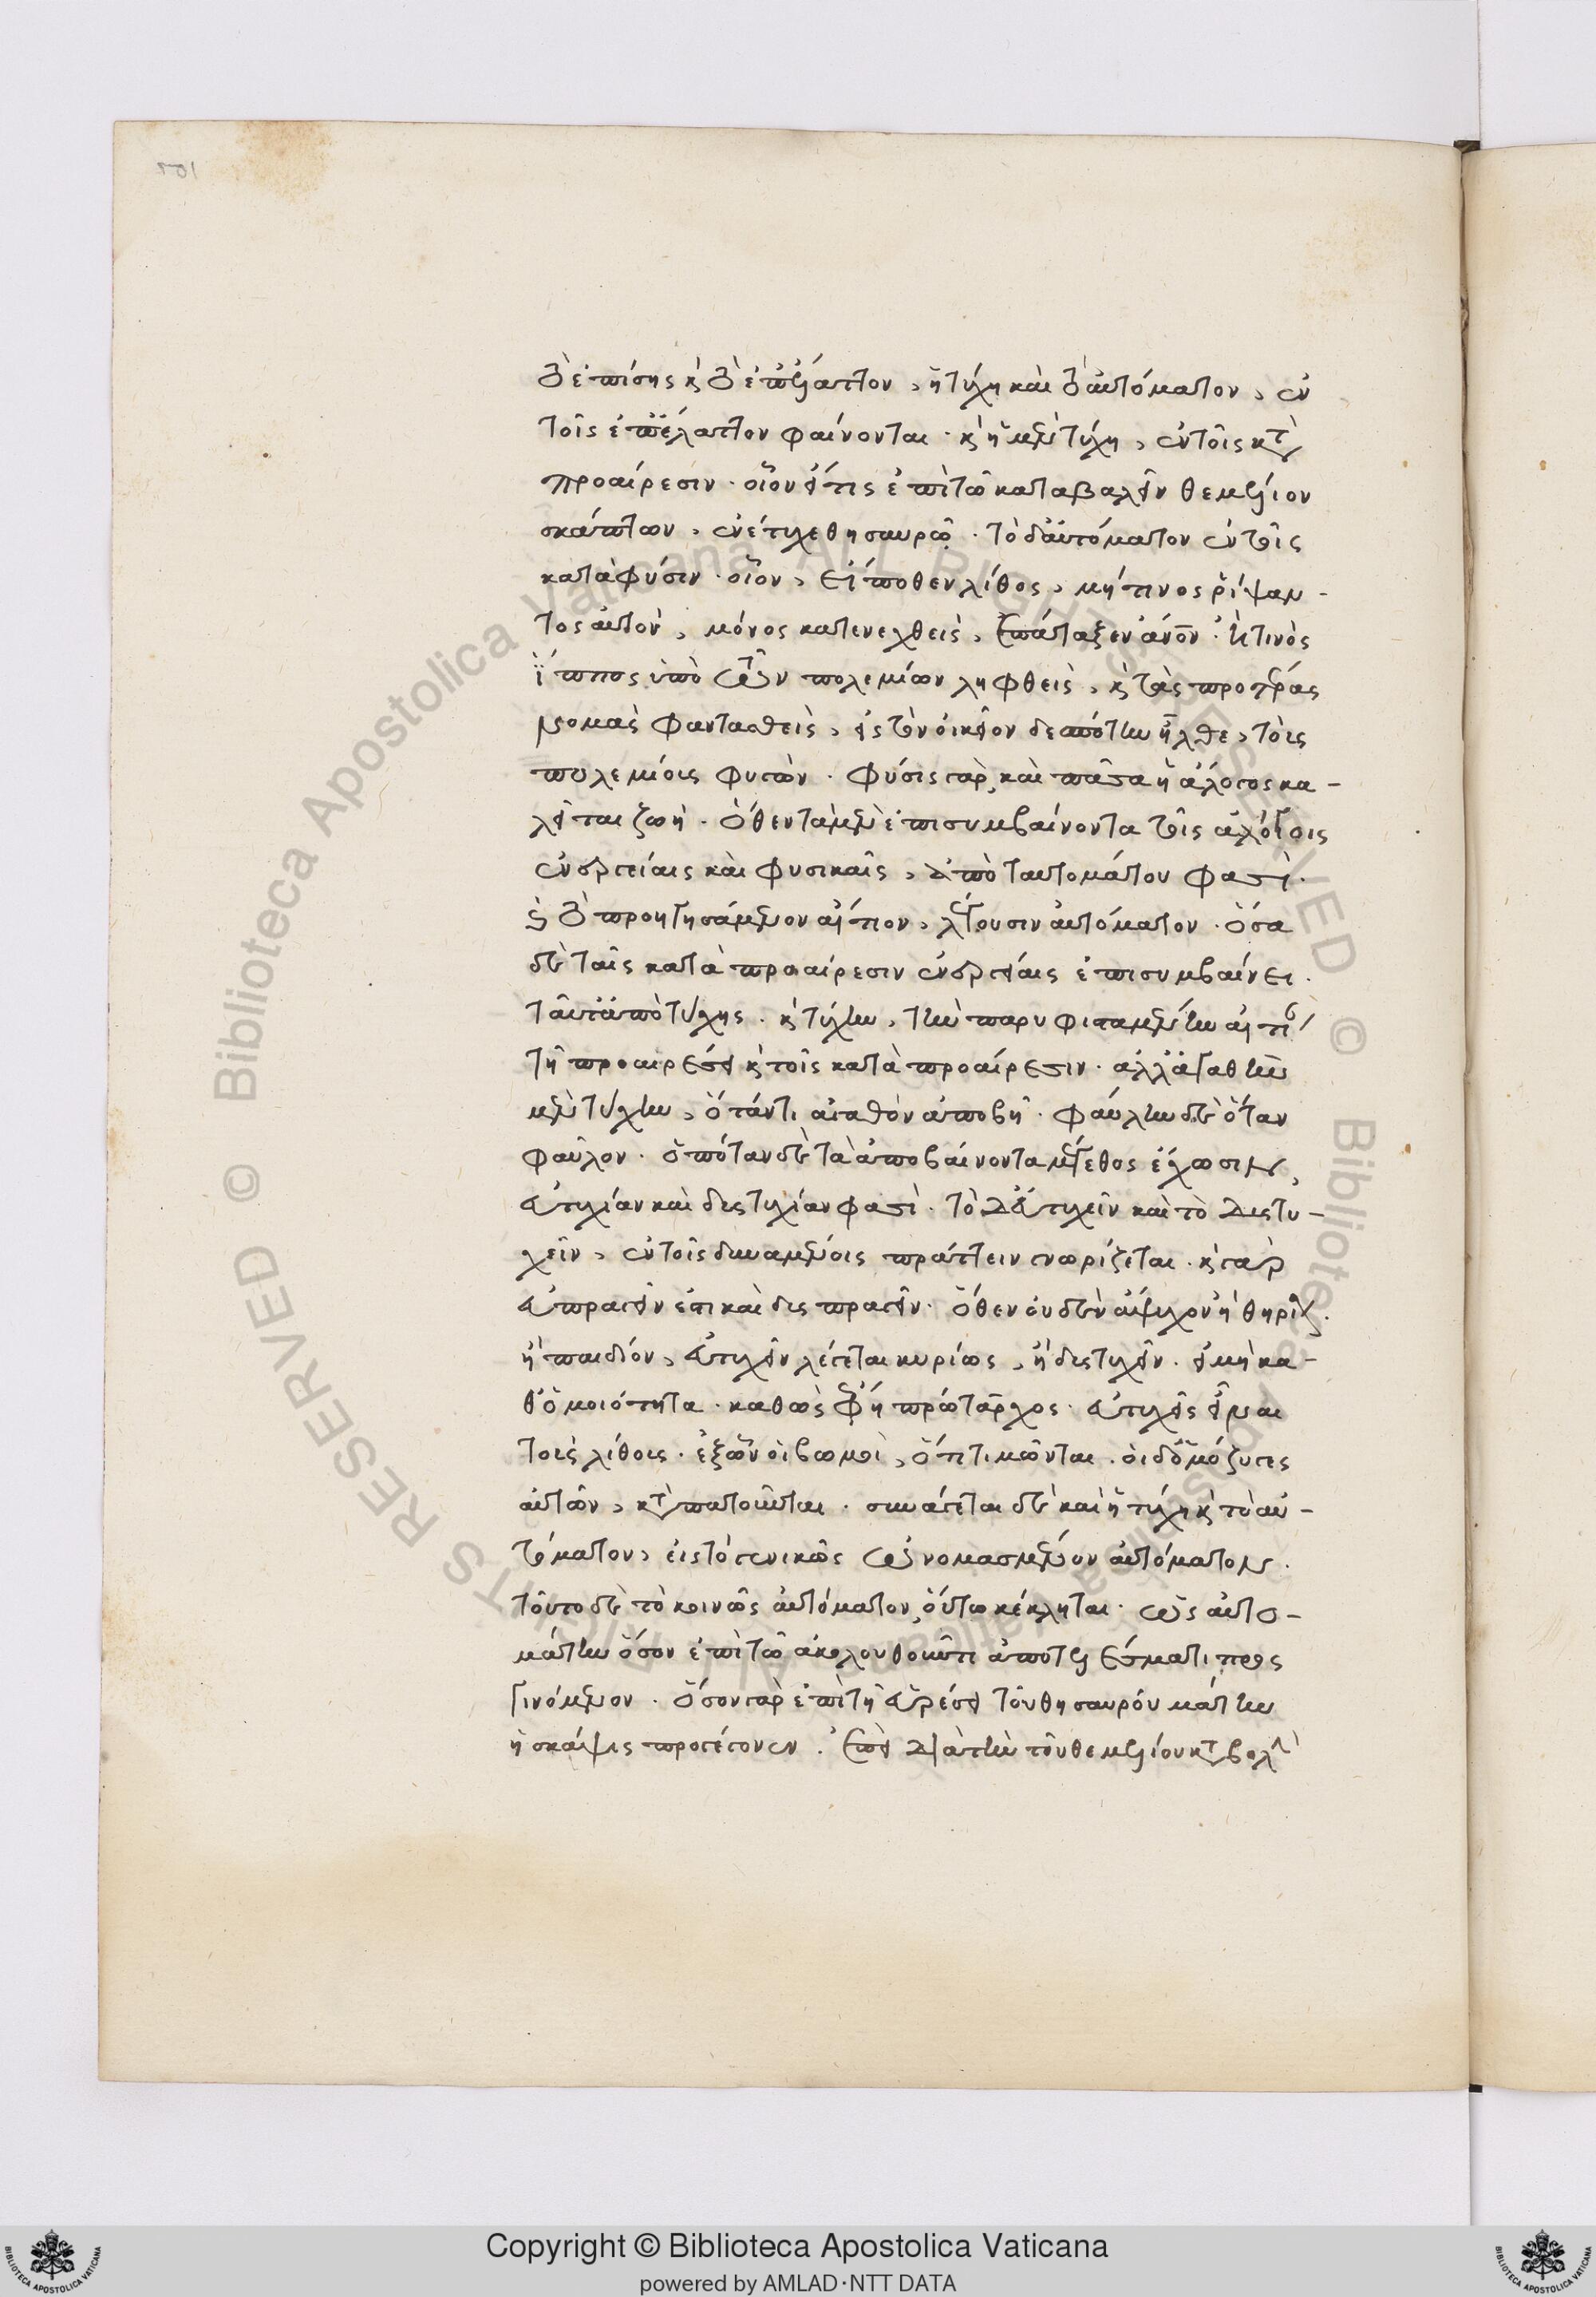 τὸ ἐπίσης κὶ τὸ ἐπέλαττον, ἡ τύχη καὶ τὸ αὐτόματον, ἐν
τοῖς ἐπέλαττον φαίνονται· κὶ ἡ μὲν τύχη, ἐν τοῖς κατὰ
προαίρεσιν· οἷον εἴ τις ἐπὶ τῶ καταβαλεῖν θεμέλιον
σκάπτων, ἐνέτυχε θησαυρῷ· τὸ δ᾽ αὐτόματον ἐν τοῖς
κατὰ φύσιν· οἷον, εἴ ποθεν λίθος, μή τινος ῥίψαν-
τος αὐτὸν, μόνος κατενεχθεὶς, ἐπάταξεν ἄνον· ἤ τινος
ἵππος ὑπὸ τῶν πολεμίων ληφθεὶς, κὶ τὰς προτέρας
νομὰς φαντασθεὶς, εἰς τὸν οἰκεῖον δεσπότην ἦλθε, τοὺς
πολεμίους φυγών· φύσις γὰρ καὶ πᾶσα ἡ ἄλογος κα-
λεῖται ζωή· ὅθεν τὰ μὲν ἐπισυμβαίνοντα ταῖς ἀλόγοις
ἐνεργείαις καὶ φυσικαῖς, ἀπὸ ταυτομάτου φασὶ·
κὶ τὸ προηγησάμενον αἴτιον, λέγουσιν αὐτόματον· ὅσα
δὲ ταῖς κατὰ προαίρεσιν ἐνεργείαις ἐπισυμβαίνει·
ταῦτα ἀπὸ τύχης· κὶ τύχην, τὴν παρυφισταμένην αἰτίαν
τῆ προαιρέσει κὶ τοῖς κατὰ προαίρεσιν· ἀλλ᾽ ἀγαθὴν
μὲν τύχην, ὅταν τι ἀγαθὸν ἀποβῆ· φαύλην δὲ ὅταν
φαῦλον· ὁπόταν δὲ τὰ ἀποβαίνοντα μέγεθος ἔχωσιν,
εὐτυχίαν καὶ δυστυχίαν φασὶ· τὸ δ᾽ εὐτυχεῖν καὶ τὸ δυστυ-
χεῖν, ἐν τοῖς δυναμένοις πράττειν γνωρίζεται· κὶ γὰρ
εὐπραγεῖν ἐστι καὶ δυσπραγεῖν· ὅθεν οὐδὲν ἄψυχον ἢ θηρίον·
ἢ παιδίον, εὐτυχεῖν λέγεται κυρίως, ἢ δυστυχεῖν· εἰ μὴ κα-
θ᾽ ὁμοιότητα· καθὼς ἔφη πρώταρχος· εὐτυχεῖς εἶναι
τοὺς λίθους· ἐξ ὧν οἱ βωμοὶ, ὅτι τιμῶνται· οἱ δ᾽ ὁμόζυγες
αὐτῶν, καταπατοῦνται· συνάγεται δὲ καὶ ἡ τύχη κὶ τὸ αὐ-
τόματον, εἰς τὸ γενικῶς ὠνομασμένον αὐτόματον·
τοῦτο δὲ τὸ κοινῶς αὐτόματον, οὕτω κέκληται· ὡς αὐτο-
μάτην ὅσον ἐπὶ τῶ ἀκολουθοῦντι ἀποτελέσματι προς
γινόμενον· ὅσον γὰρ ἐπὶ τῆ εὑρέσει τοῦ θησαυροῦ μάτην
ἡ σκάψις προγέγονεν· ἐπεὶ διὰ τὴν τοῦ θεμελίου καταβολὴν